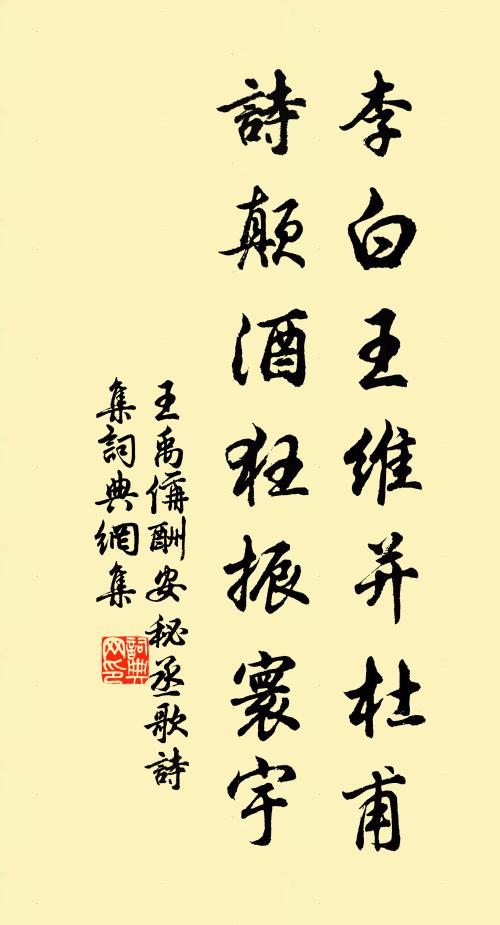 李白王维并杜甫
詩颠酒狂振寰宇
王禹偁酬安秘丞歌詩
集詞典網集
詞典網印